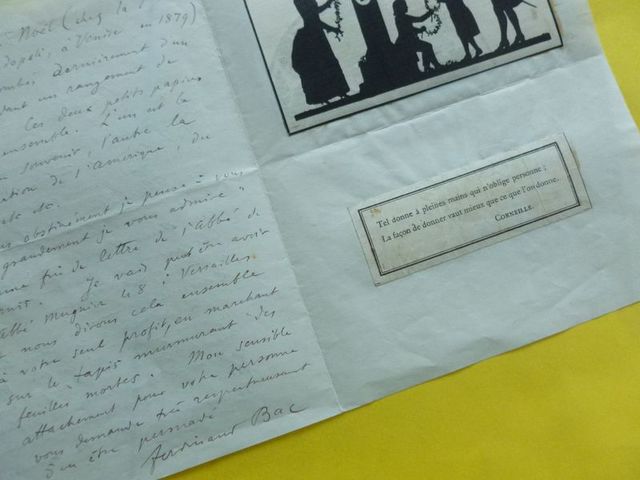 Noël (chez la
à Venise en 1879)
dernièrement d'un
un rangement de
Ces deux petits papiers
ensemble. L'un est la
souvenir, l'autre la
de l'Amérique, du
etc etc.
obstinément je pense à vous
grandement je vous admire "
fin de lettre de l'Abbé de
Je vais peut être avoir
Abbé Mugnier le 8 à Versailles
nous dirons cela ensemble
à votre seul profit, en marchant
sur le tapis murmurant des
feuilles mortes. Mon sensible
attachement pour votre personne
vous demande très respectueusement
d'en être persuadé
Ferdinand Bac
Tel donne à pleines mains qui n'oblige personne ;
La façon de donner vaut mieux que ce que l'on donne.
CORNEILLE.